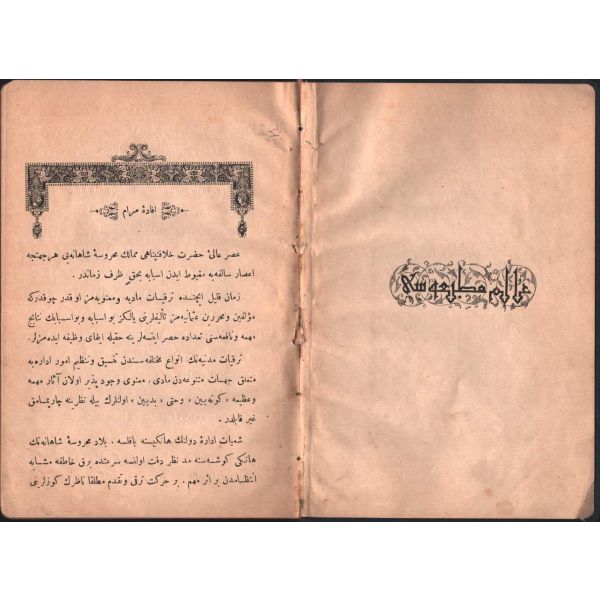 عالم مطبعه‌سی
افادۀ مرام
عصر عالیٔ حضرت خلافتپناهی ممالك محروسۀ شاهانه‌یی هرجهتجه
اعصار سالفه‌یه مغبوط ایدن اسبابه بحق ظرف زماندر .
زمان قلیل ایچنده ترقیات مادیه و معنویه‌مز او قدر چوقدرکه
مؤلفین و محررین عثمانیه‌مز تألیفلرینی یالکز بو اسبابه و بو اسبابك نتایج
مهمه و نافعه‌سنی تعداده حصر ایتسه‌لر ینه حقیله ایفای وظیفه ایده‌مزلر.
ترقیات مدنیه‌نك انواع مختلفه‌سندن تنسیق و تنظیم امور اداره‌یه
متعلق جهات متنوعه‌دن مادی، معنوی وجود پذیر اولان آثار مهمه
و عظیمه «کوته‌بین» وحتی «بدبین» اولنلرك بیله نظرینه چارپمامق
غیر قابلدر .
شعبات ادارۀ دولتك هانکیسنه باقلسه ، بلاد محروسۀ شاهانه‌نك
هانکی کوشه‌سنه مد نظر دقت اولنسه سرعتده برق خاطفه مشابه
انتظامدن بر اثر مهم ، بر حرکت ترقی و تقدم مطلقا ناظرك کوزلرینی